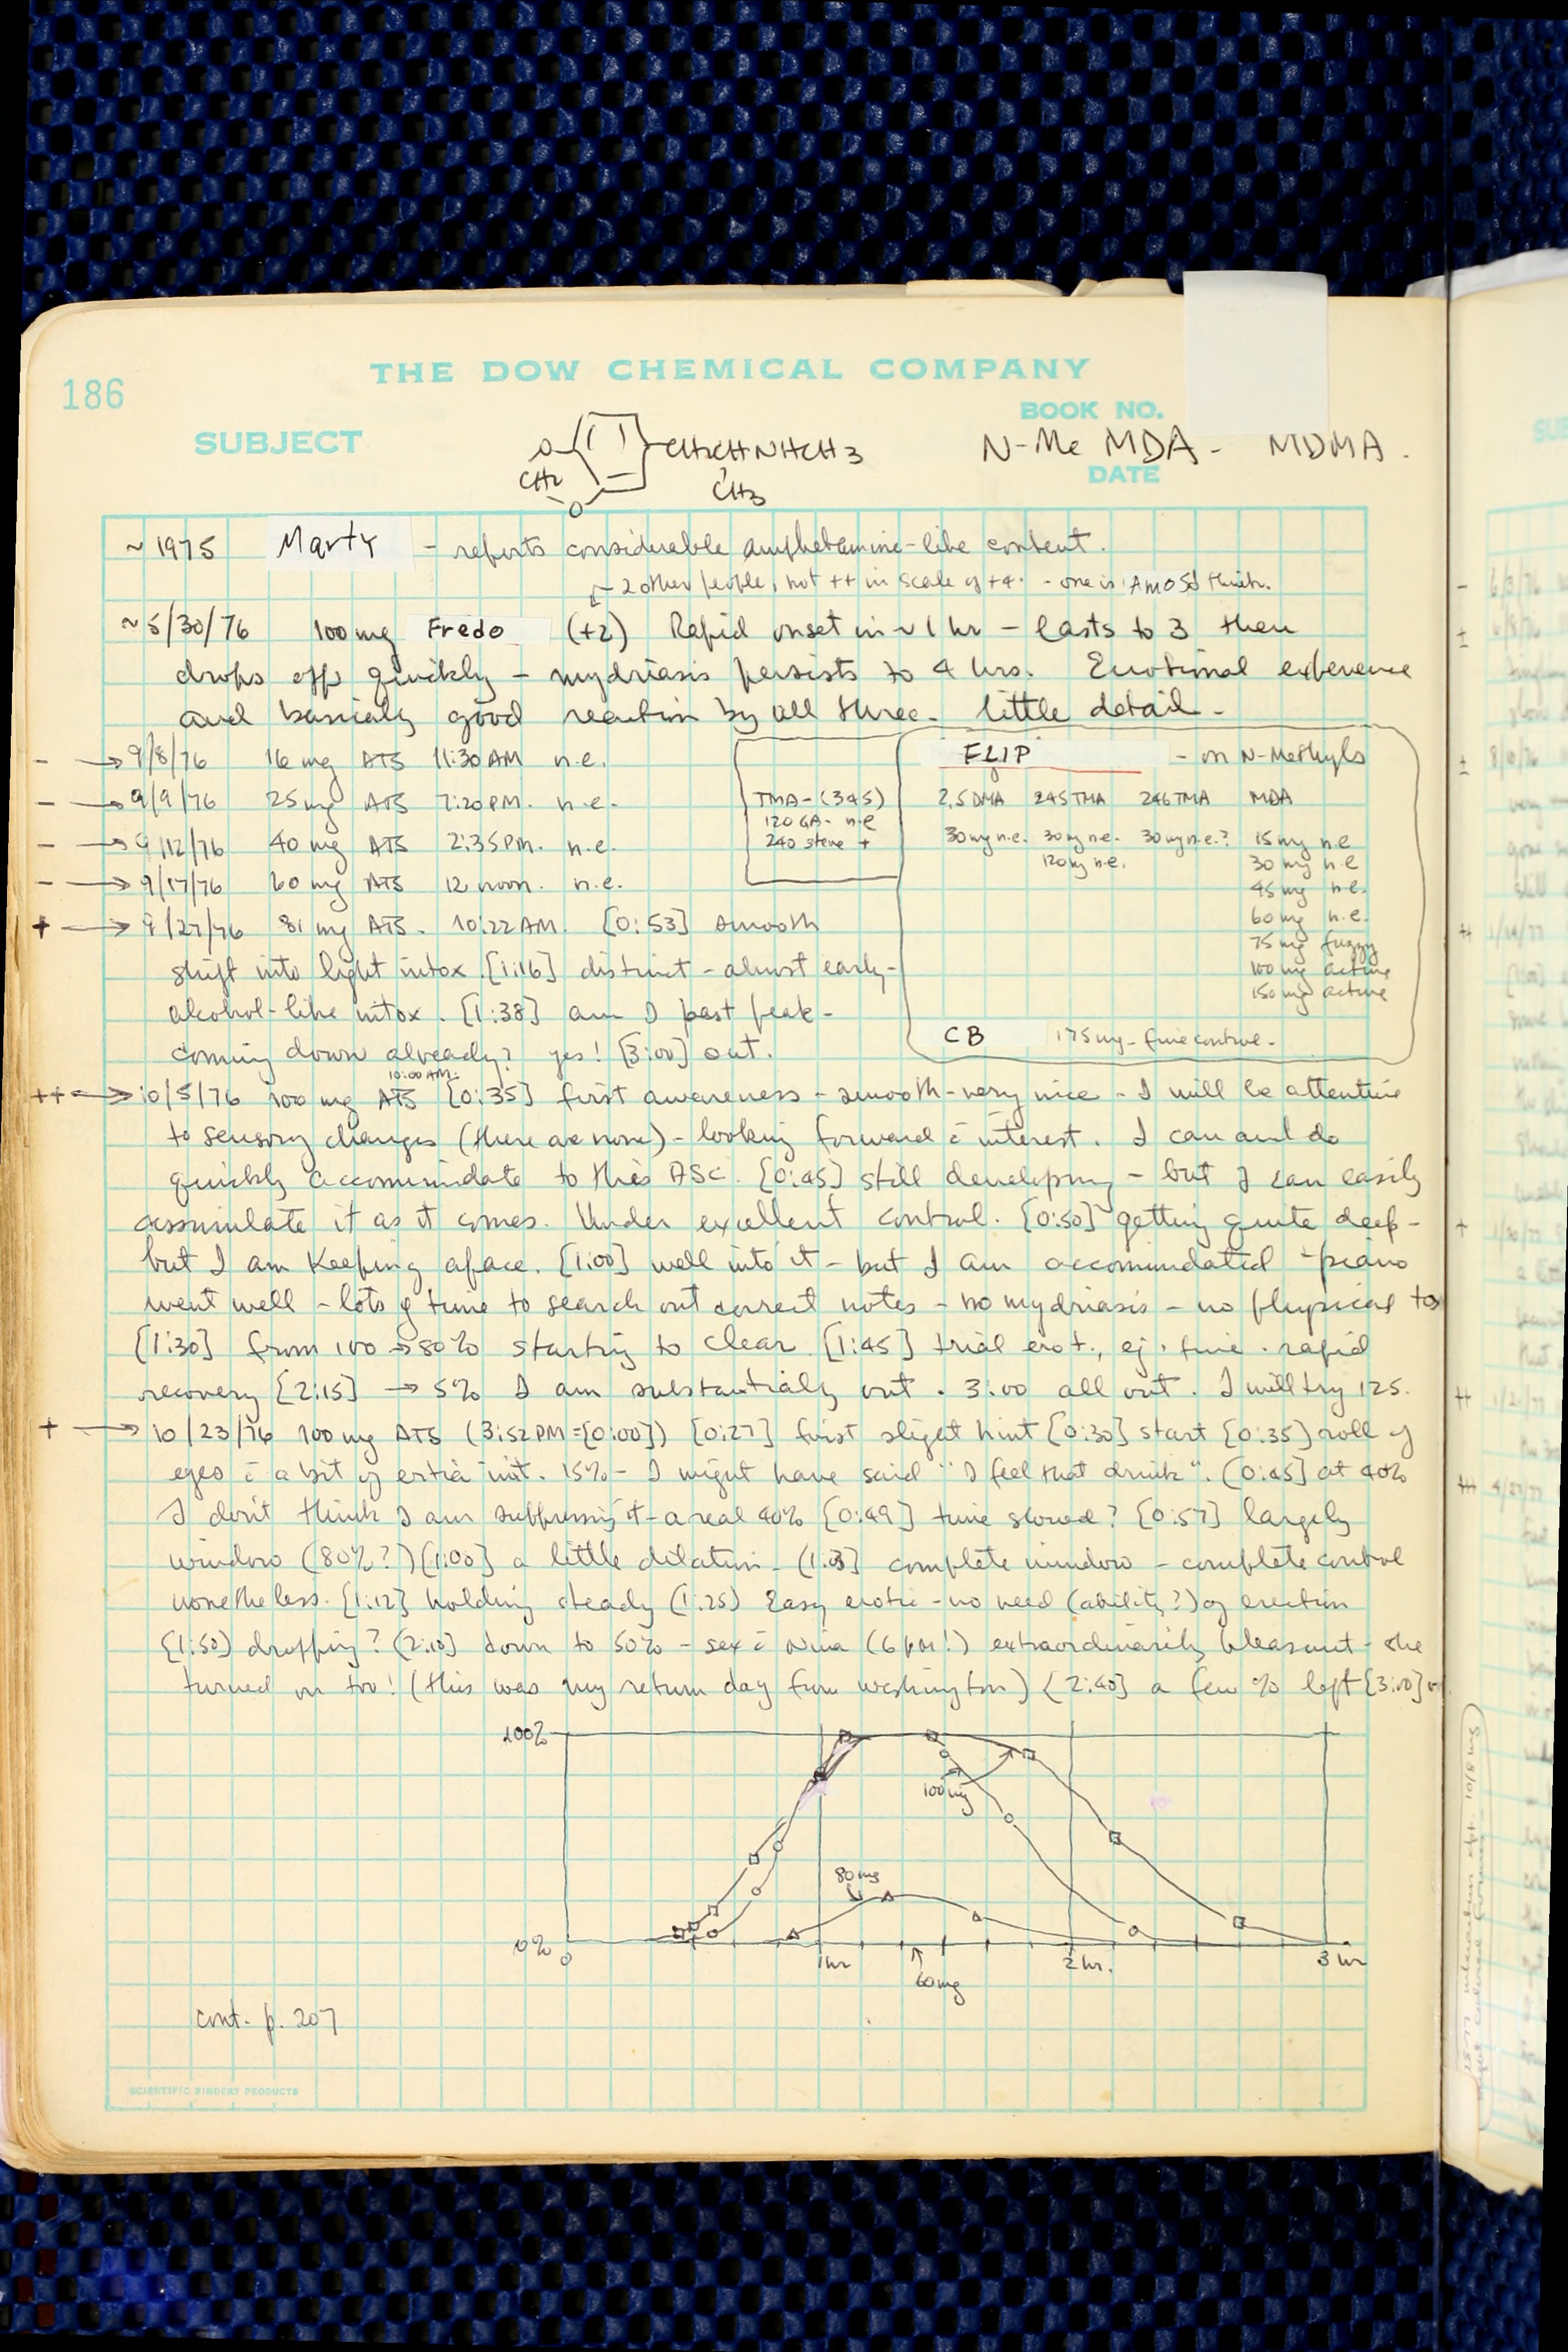 THE DOW CHEMICAL COMPANY
186
BOOK NO.
SUBJECT
O CH2CHNHCH3 N-Me MDA - MDMA.
CH2 CH3 DATE
O
~1975 Marty - reports considerable amphetamine-like content.
2 other people, not ++ in scale of +4. - one is AMOSd think.
~5/30/76 100 mg Fredo (+2) Rapid onset in ~1 hr - lasts to 3 then
drops off quickly - mydriasis persists to 4 hrs. Emotional experience
and basicaly good reaction by all three. little detail -
- → 9/8/76 16 mg ATS 11:30 AM n.e.
- → 9/9/76 25 mg ATS 7:20 PM. n.e.
- → 9/12/76 40 mg ATS 2:35 PM. n.e.
- → 9/17/76 60 mg ATS 12 noon. n.e.
+ → 9/27/76 81 mg ATS. 10:22 AM. [0:53] smooth
shift into light intox. [1:16] distinct - almost early-
alcohol-like intox. [1:38] am I past peak -
coming down already? yes! [3:00] out.
TMA-(345)
120 GA- n.e
240 steve +
FLIP - on N-Methyls
2,5 DMA 245 TMA 246 TMA MDA
30 mg n.e. 30 mg n.e. 30 mg n.e.? 15 mg n.e
120 mg n.e. 30 mg n.e
45 mg n.e.
60 mg n.e.
75 mg fuzzy
100 mg active
150 mg active
CB 175 mg - fine control -
10:00 AM:
++ → 10/5/76 100 mg ATS [0:35] first awareness - smooth - very nice - I will be attentive
to sensory changes (there are none) - looking forward c̄ interest. I can and do
quickly accommindate to this ASC. [0:45] still developing - but I can easily
assimulate it as it comes. Under excellent control. [0:50] getting quite deep -
but I am keeping apace. [1:00] well into it - but I am accomindated - piano
went well - lots of time to search out correct notes - no mydriasis - no physical tox
[1:30] from 100 → 80% starting to clear. [1:45] trial erot., ej. fine. rapid
recovery [2:15] → 5% I am substantially out. 3:00 all out. I will try 125.
+ → 10/23/76 100 mg ATS (3:52 PM = [0:00]) [0:27] first slight hint [0:30] start [0:35] roll of
eyes c̄ a bit of 15% - I might have said "I feel that drink". [0:45] at 40%
I don't think I am suppressing it - a real 40% [0:49] time slowed? [0:57] largely
window (80%?) [1:00] a little dilation - [1:03] complete window - complete control
nonetheless. [1:12] holding steady (1:25) Easy erotic - no need (ability?) of erection
[1:50] dropping? (2:10] down to 50% - sex c̄ Nina (6 PM!) extraordinarily pleasant - she
turned on too! (this was my return day from Washington) [2:40] a few % left [3:00]
100%
100 mg
80 mg
0%
0 1 hr 2 hr. 3 hr
60 mg
cont. p. 207
SCIENTIFIC BINDERY PRODUCTS